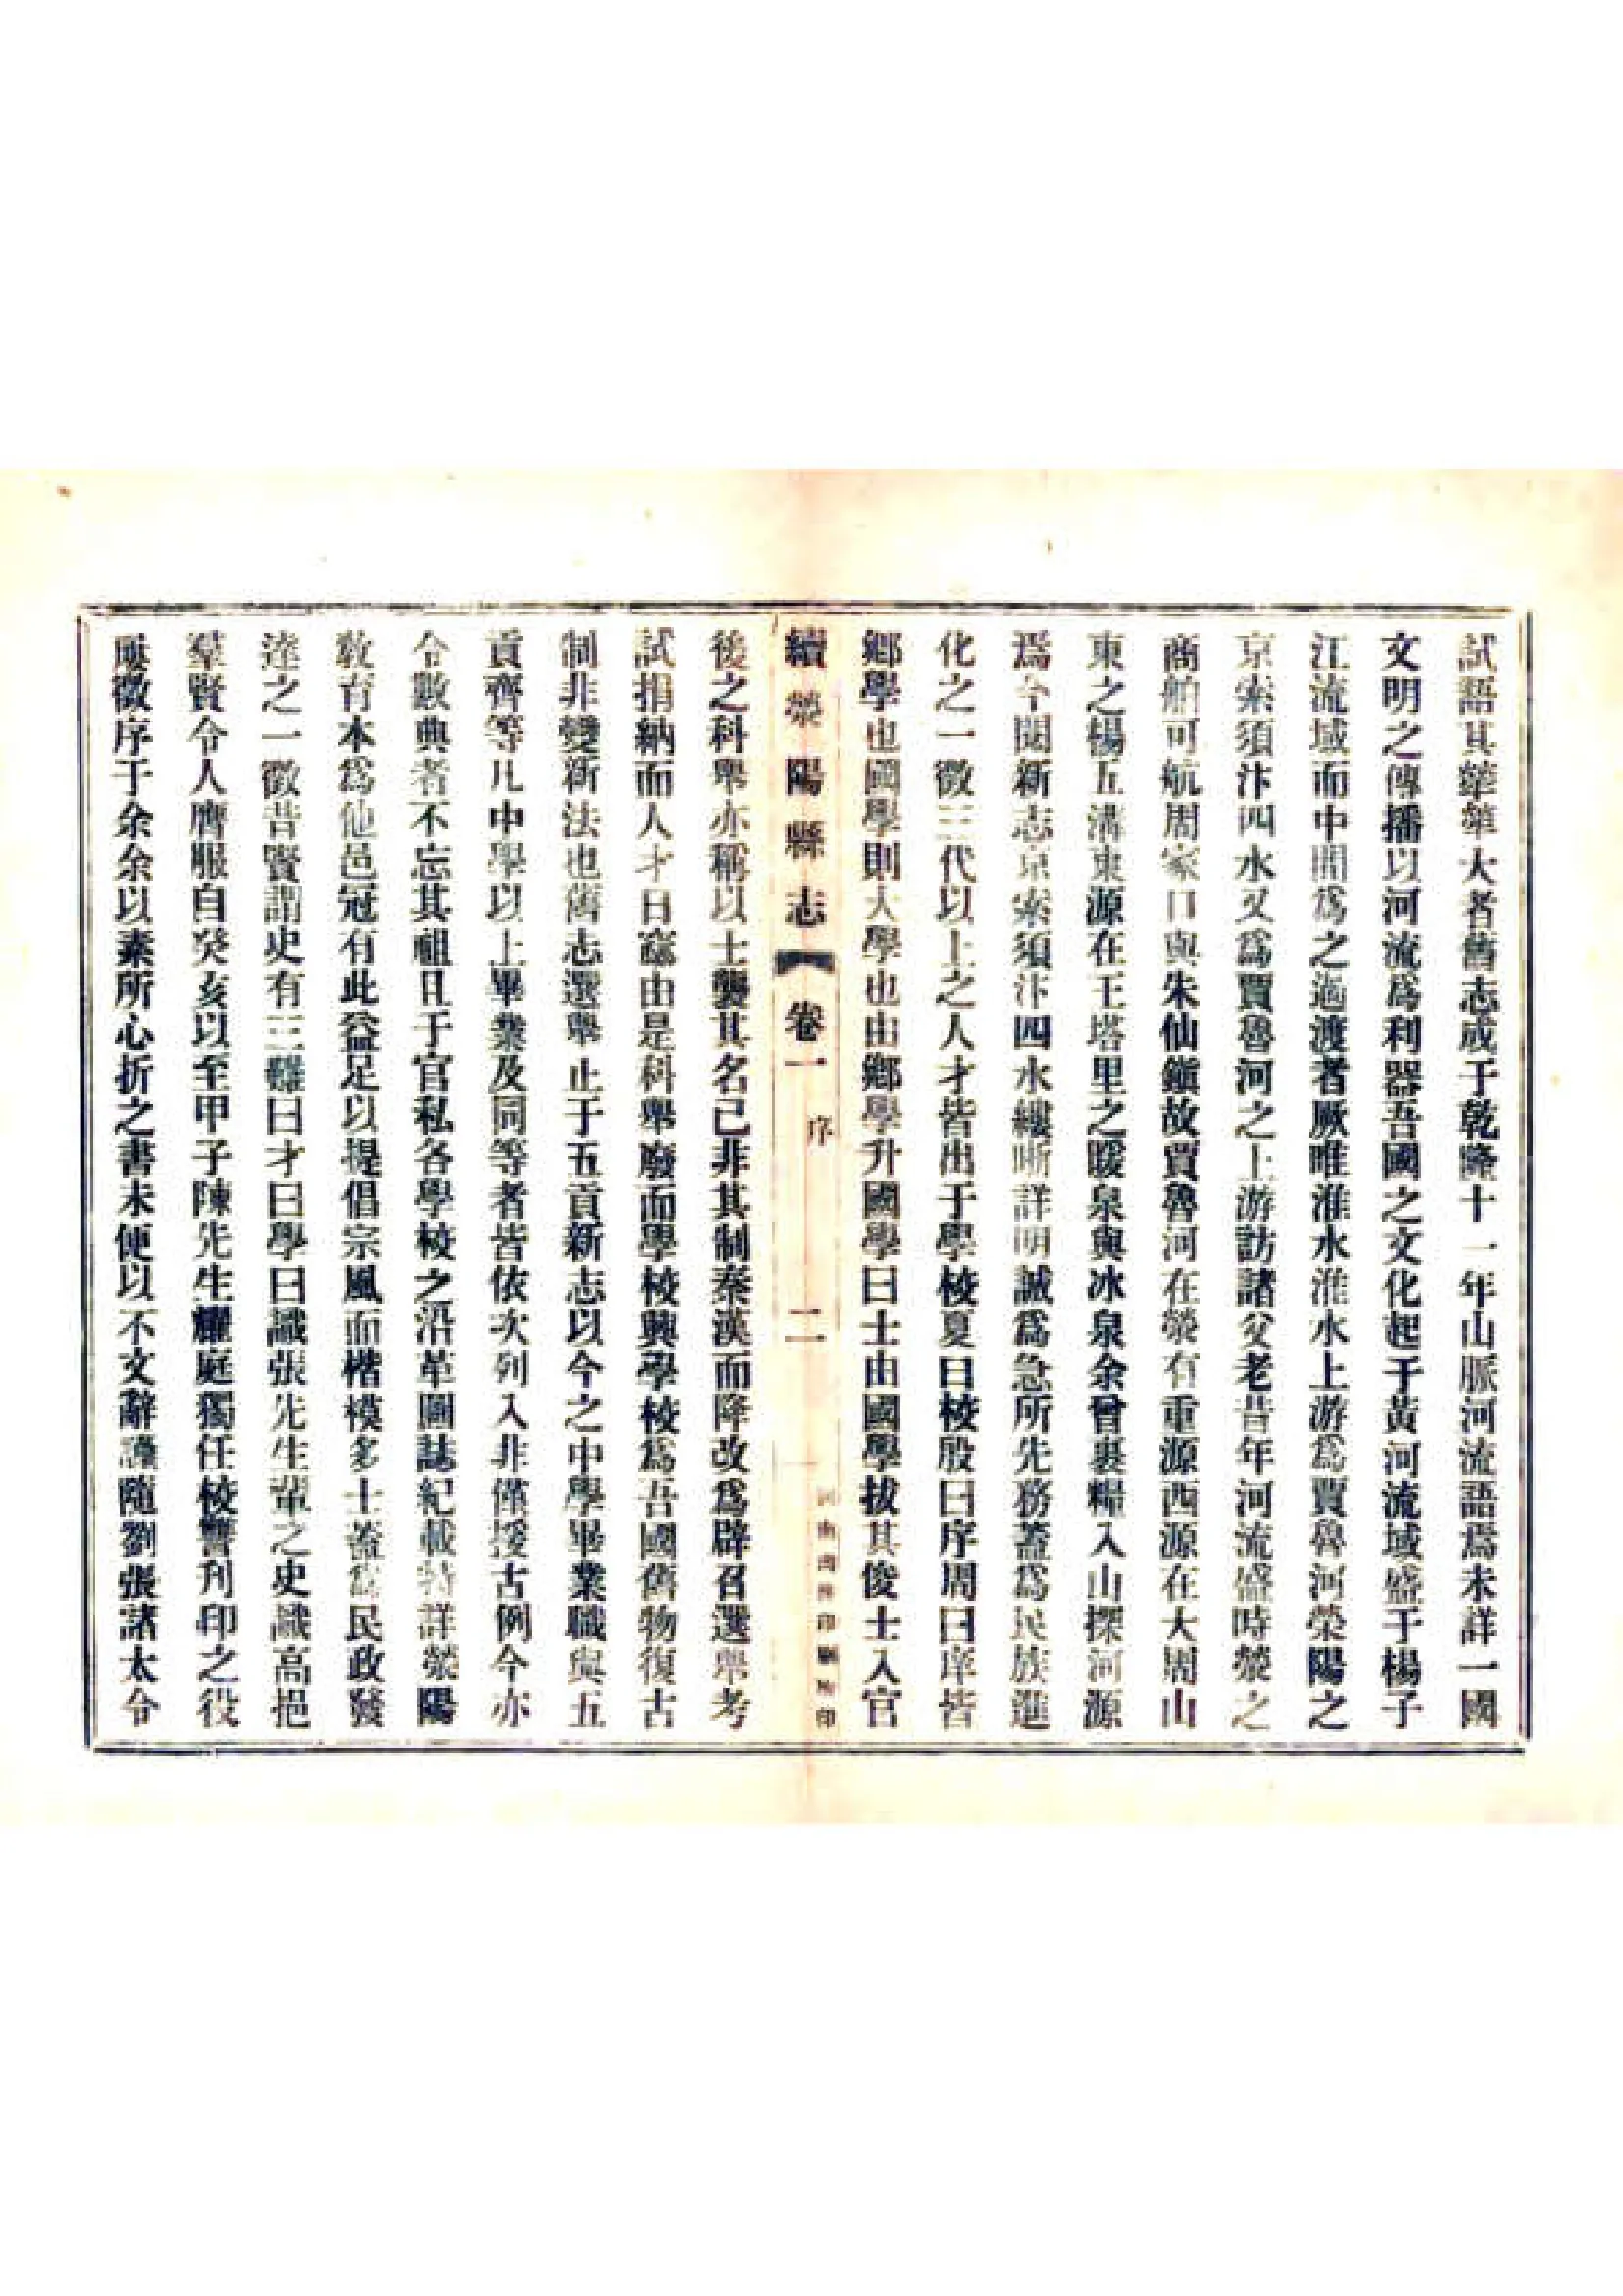 試語其犖犖大者舊志成于乾隆十一年山脈河流語焉未詳一國
文明之傳播以河流爲利器吾國之文化起于黃河流域盛于楊子
江流域而中間爲之過渡者厥唯淮水淮水上游爲賈魯河滎陽之
京索須汴四水又爲賈魯河之上游訪諸父老昔年河流盛時滎之
商舶可航周家口與朱仙鎭故賈魯河在滎有重源西源在大周山
東之楊五溝東源在王塔里之暖泉與冰泉余曾裹糧入山探河源
爲今閱新志京索須汴四水縷晰詳明誠爲急所先務蓋爲民族進
化之一徵三代以上之人才皆出于學校夏曰校殷曰序周曰庠皆
鄉學也國學則大學也由鄉學升國學曰士由國學拔其俊士入官
續滎陽縣志 卷一 序 二 印
後之科舉亦稱以士襲其名已非其制秦漢而降改爲辟召選舉考
試捐納而人才日窳由是科舉廢而學校興學校爲吾國舊物復古
制非變新法也舊志選舉止于五貢新志以今之中學畢業職與五
貢齊等凡中學以上畢業及同等者皆依次列入非僅援古例今亦
令數典者不忘其祖且于官私各學校之沿革圖誌紀載特詳滎陽
敎育本爲他邑冠有此益足以提倡宗風而楷模多士蓋爲民政發
達之一徵昔賢謂史有三難曰才曰學曰識張先生輩之史識高挹
羣賢令人膺服自癸亥以至甲子陳先生耀庭獨任校讐刊印之役
屢徵序于余余以素所心折之書未便以不文辭謹隨劉張諸太令